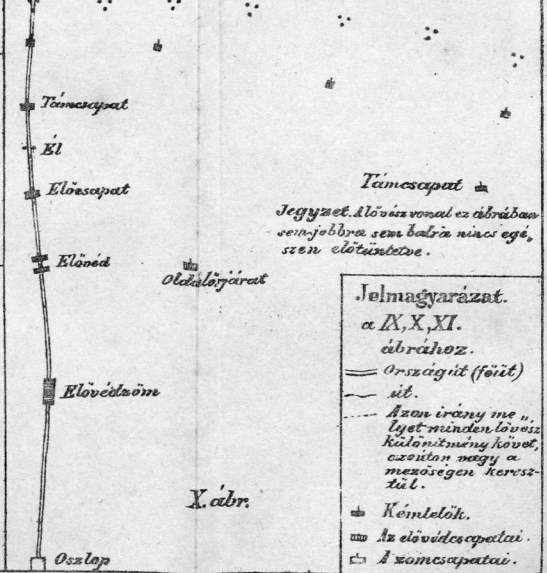 Támcsapat
Él
Előcsapat
Elővéd
Oldalőrjárat
Elővédzöm
Oszlop
Támcsapat
Jegyzet. A lővész vonal ez ábrában
sem jobbra sem balra nincs egé„
szen előtüntetve.
X. ábr.
Jelmagyarázat.
a IX, X, XI.
ábrához.
Országút (főút)
út.
Azon irány me„
lyet minden lővész
különitmény követ,
az úton vagy a
mezőségen keresz-
tül.
Kémlelők.
Az elővédcsapatai.
A zömcsapatai.